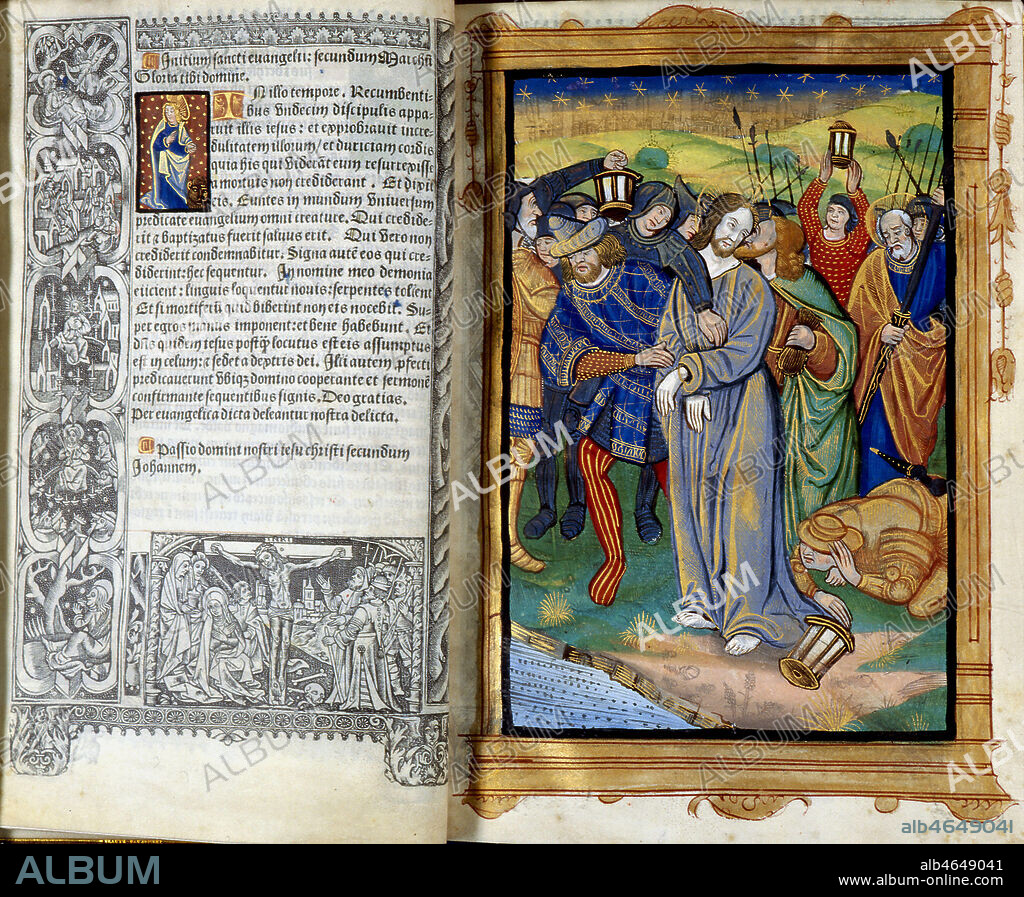 Initium sancti evangelii: secundum Marcum
Gloria tibi domine.
IN illo tempore. Recumbenti-
bus undecim discipulis appa-
ruit illis iesus: et exprobravit incre
dulitatem illorum/et duriciam cordis
quia his qui viderāt eum resurrexisse
a mortuis non crediderant. Et dixit
eis. Euntes in mundum universum
predicate evangelium omni creature. Qui credide-
rit & baptizatus fuerit salvus erit. Qui vero non
crediderit condemnabitur. Signa autē eos qui cre-
diderint: hec sequentur. In nomine meo demonia
eiicient: linguis loquentur novis: serpentes tollent
Et si mortiferū quid biberint non eis nocebit. Su-
per egros manus imponent: et bene habebunt. Et
dūs quidem iesus postq̄ locutus est eis assumptus
est in celum: & sedet a dextris dei. Illi autem pfecti
predicaverunt ubiq; domino cooperante et sermonē
confirmante sequentibus signis. Deo gratias.
Per evangelica dicta deleantur nostra delicta.
Passio domini nostri iesu christi secundum
Johannem.
INRI
ALBUM
alb4649041
ALBUM
alb4649041
www.album-online.com